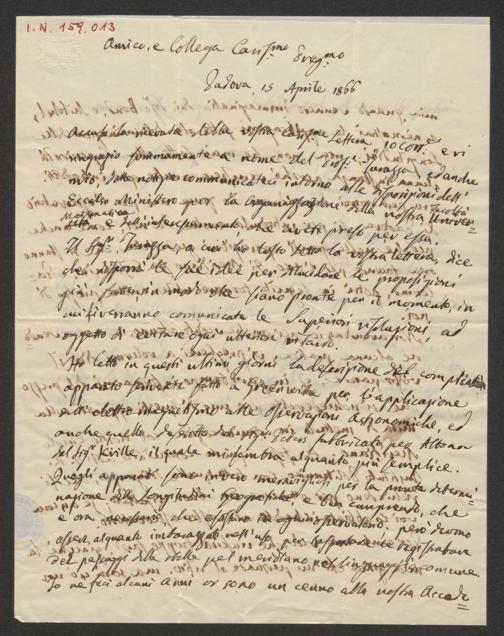 I.N. 159.013
Amico, e Collega Cariss.mo Preg.mo
Padova, 15 Aprile 1866
della vostra cariss.ma Lettera 10 corr.e e vi
ringrazio sommamente a nome del Prof.e Turazza, ed anche
mio, delle notizie comunicateci intorno alle disposizioni dell'
Eccelso Ministero per la Organizzazione della nostra Facoltà
Matematica e dell'interessamento che avete preso per essa.
Il Sig.r Turazza, a cui ho tosto letto la vostra lettera, dice
che le sue idee per le proposizioni
in modo che siano pronte per il momento, in
cui ci verranno comunicate le Superiori risoluzioni, ad
oggetto di evitare ogni ulteriore ritardo.
Ho letto in questi ultimi giorni la descrizione del complicato
apparato fatto a Greenwich per l'applicazione
dell'elettro-magnetismo alle osservazioni Astronomiche, ed
anche quella fabbricato per Altona
del Sig.r il quale mi sembra alquanto più semplice.
Quegli apparati sono invero meravigliosi per la determi=
nazione delle Longitudini e ben comprendo, che
e ora che esistano in ogni osservatorio, però devono
esser alquanto nell'uso per registrare
dei passaggi delle stelle pel meridiano nel linguaggio comune.
Io ne feci alcuni anni or sono un cenno alla nostra Accade=